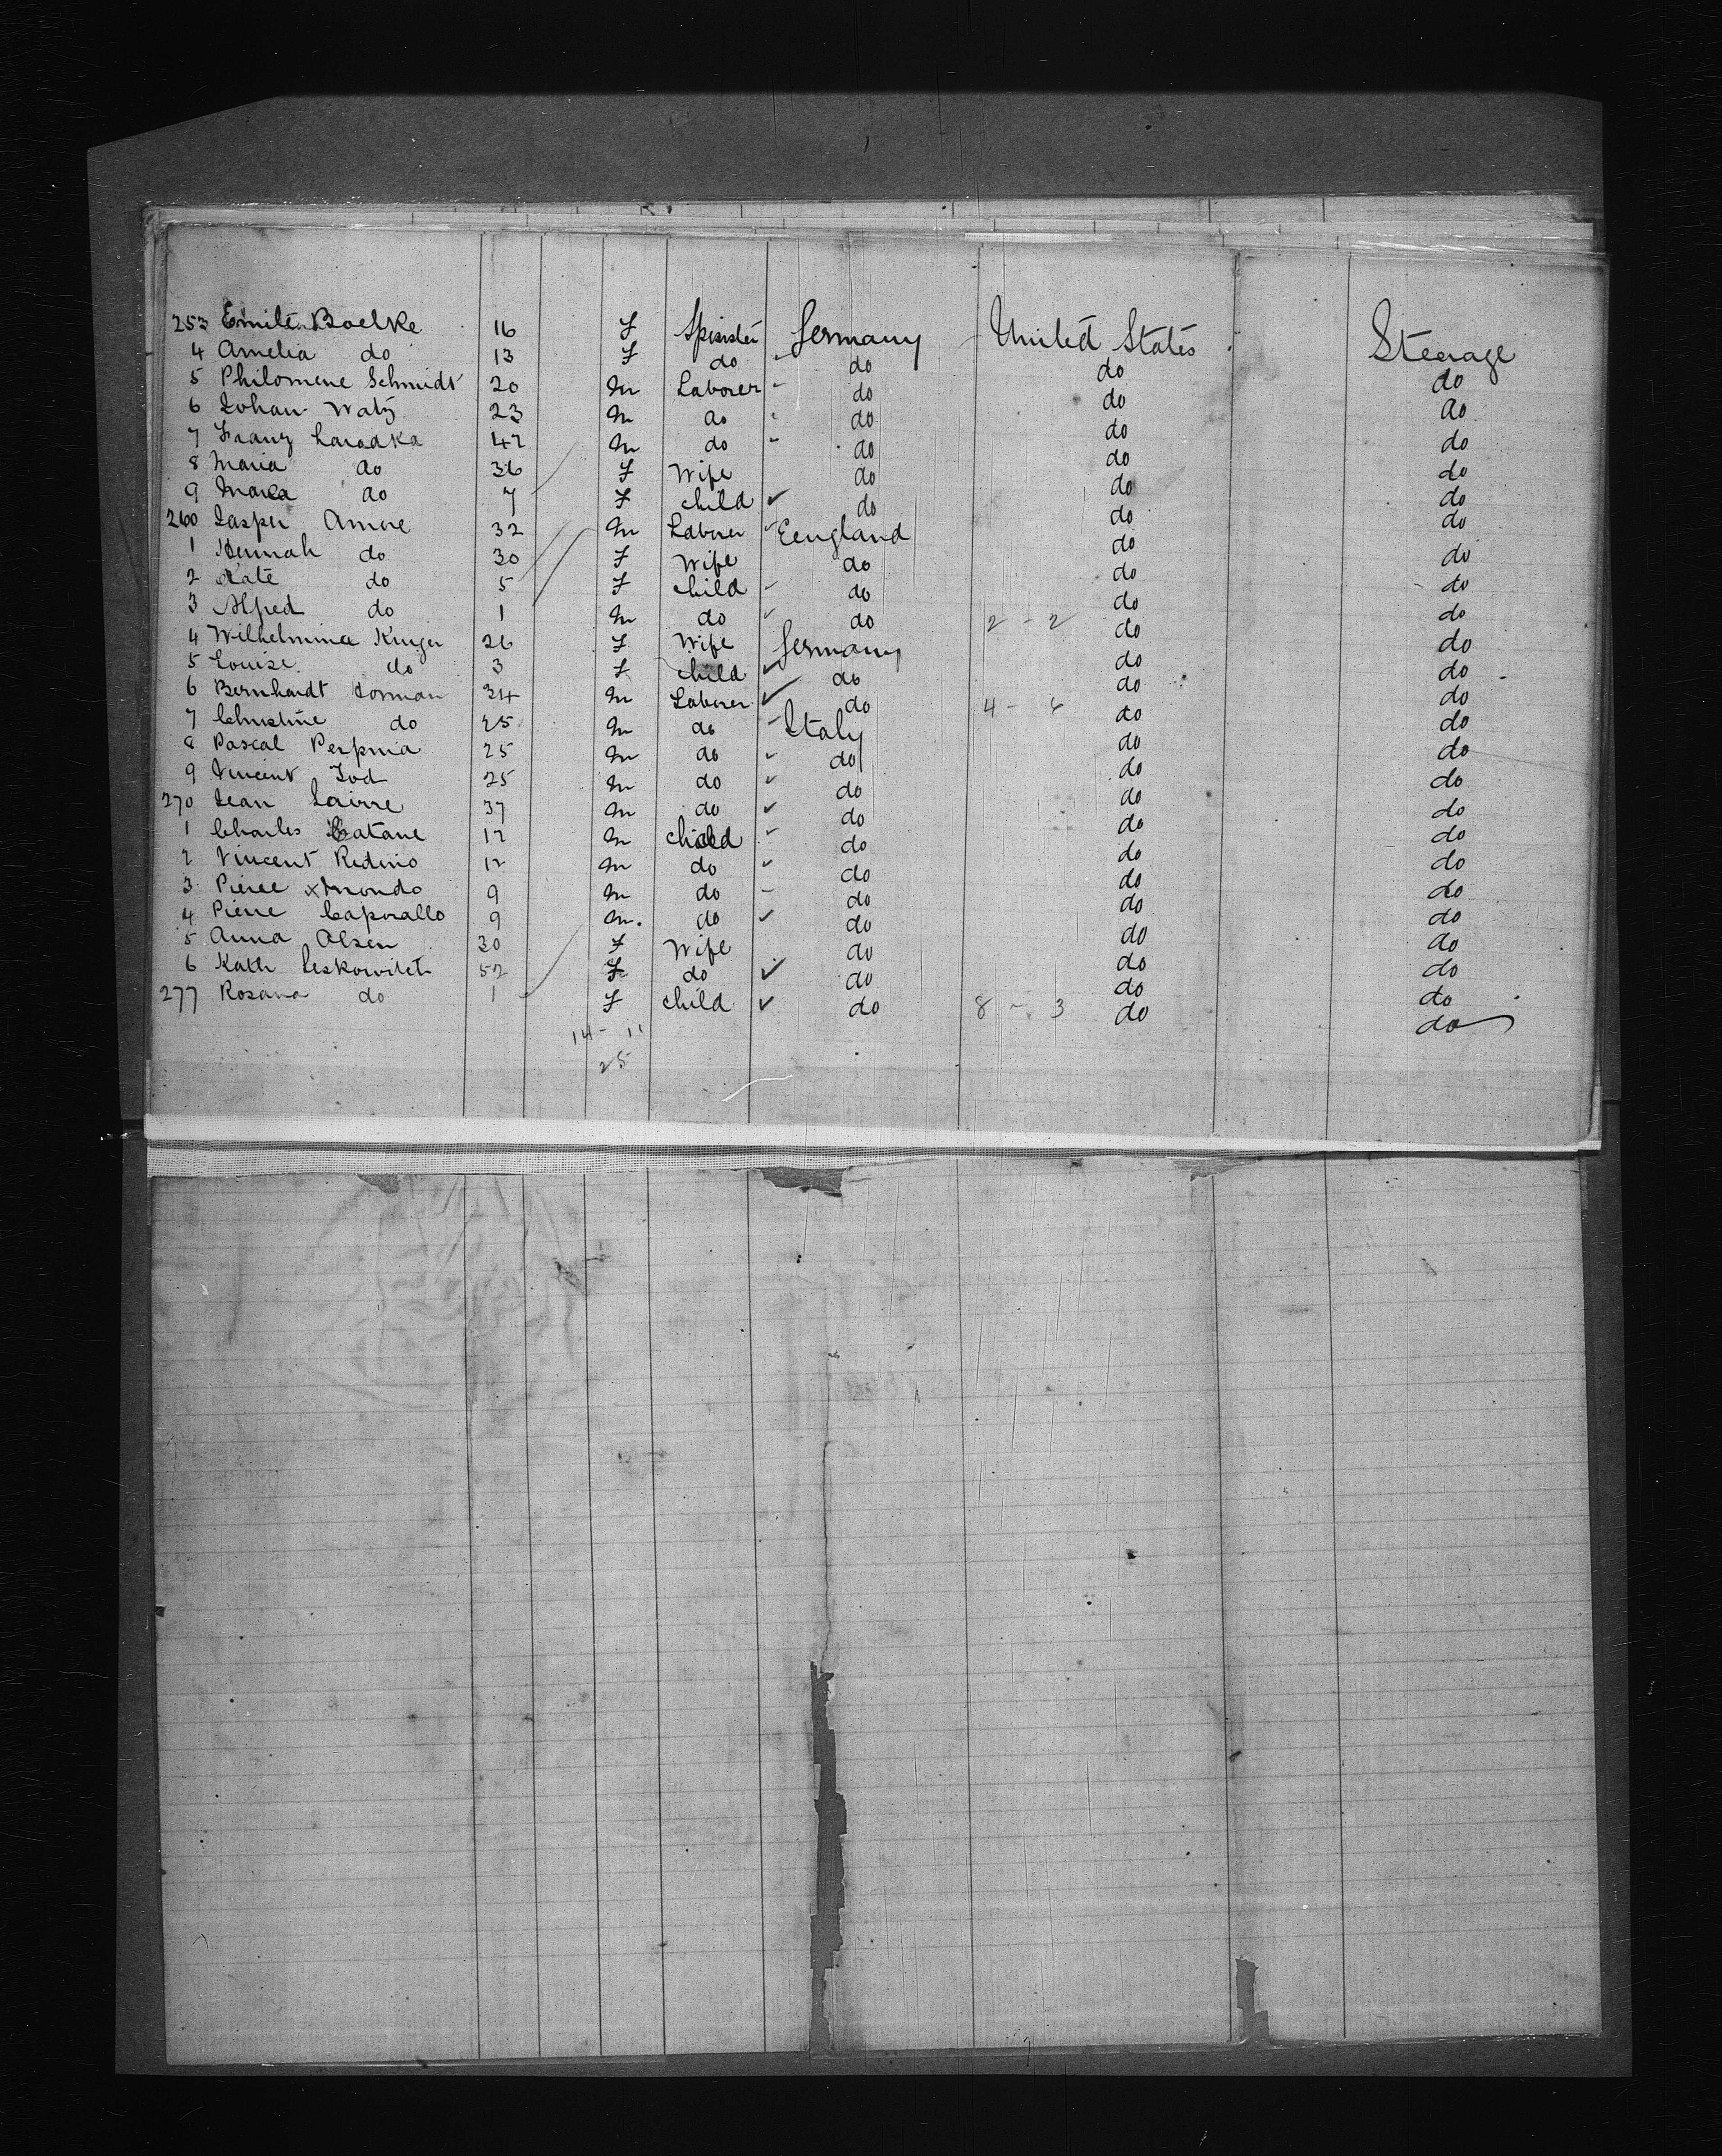 253 Emilie Boelke 16 F Spinster Germany United States Steerage
4 Amelia do 13 F do do do do
5 Philomene Schmidt 20 M Laborer do do do
6 Johan Waltz 23 M do do do do
7 Franz 42 M do do do do
8 Maria do 36 F Wife do do do
9 Maria do 7 F Child do do do
260 Jasper Amore 32 M Laborer Eengland do do
1 Hannah do 30 F Wife do do do
2 Kate do 5 F Child do do do
3 Alfred do 1 M do do 2 - 2 do do
4 Wilhelmina Kruger 26 F Wife Germany do do
5 Louise do 3 F Child do do do
6 Bernhardt 34 M Laborer do 4 - do do
7 Christine do 25 M do Italy do do
8 Pascal Perpinia 25 M do do do do
9 Vincent 25 M do do do do
270 Jean Lairre 37 M do do do do
1 Charles Catane 12 M Child do do do
2 Vincent Redino 12 M do do do do
3 Pierre 9 M do do do do
4 Pierre Caporallo 9 M. do do do do
5 Anna Olsen 30 F Wife do do do
6 Kath 52 F do do do do
277 Rosana do 1 F Child do 8 - 3 do do
14 - 11
25